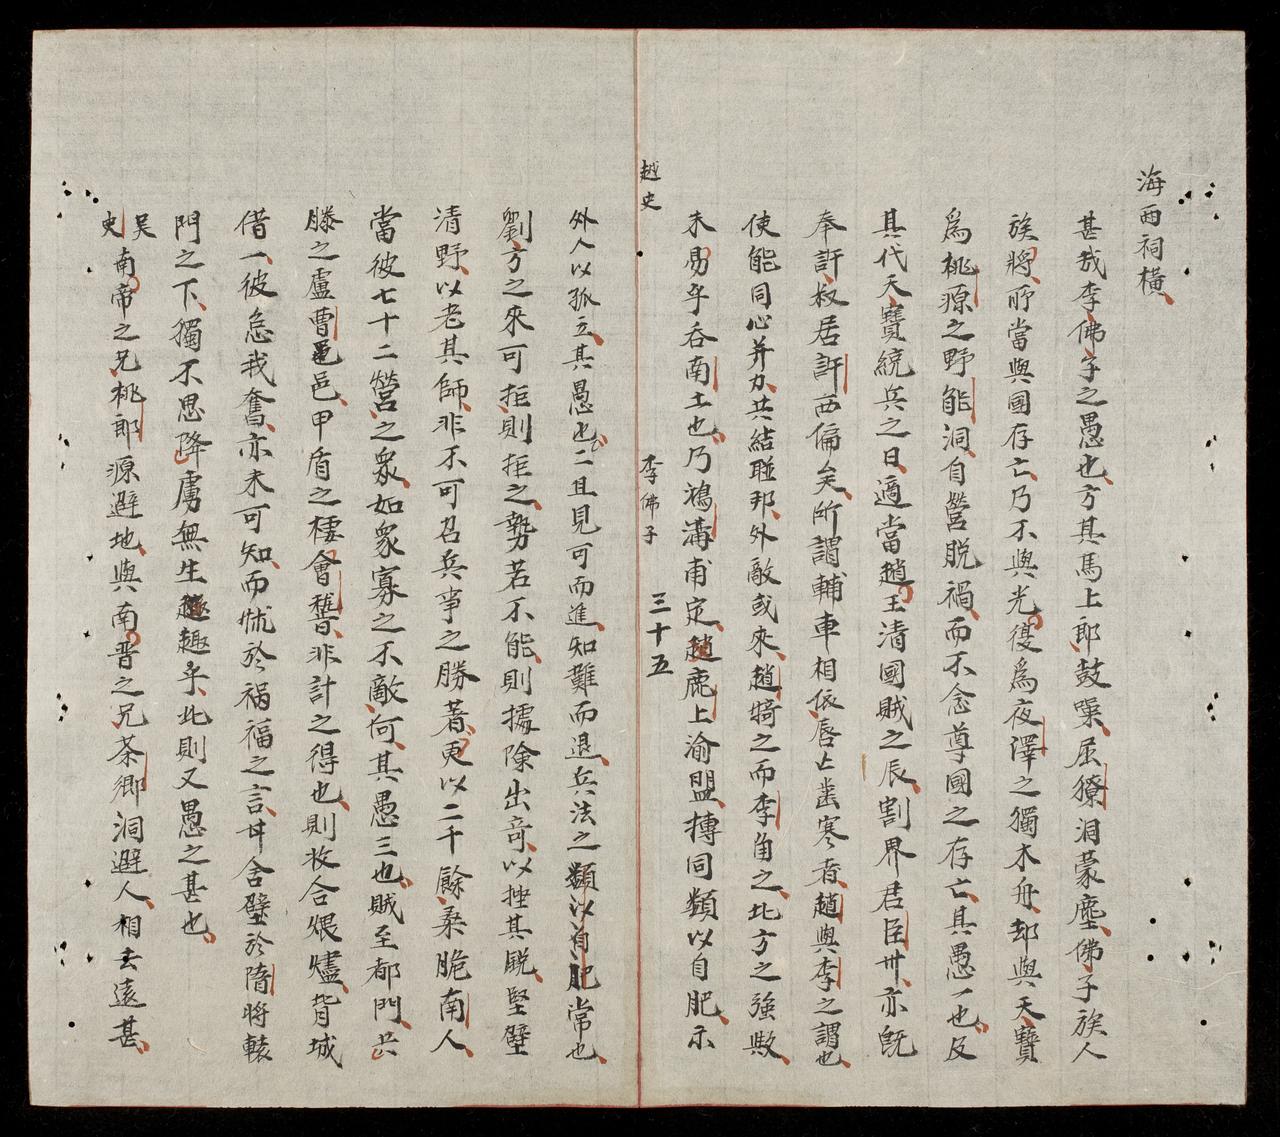 海西祠橫
甚哉李佛子之愚也方其馬上郎鼓噪屈獠洞蒙塵佛子族人
族將所當與國存亡乃不與光復爲夜澤之獨木舟却與天寶
爲桃源之野能洞自營脱禍而不念尊國之存亡其愚一也及
其代天寶統兵之日適當趙王清國賊之辰割界君臣卅亦旣
奉許叔居許西偏矣所謂輔車相依唇亡齒寒者趙與李之謂也
使能同心并力共結聯邦外敵或來趙犄之而李角之北方之強敶
未易乎吞南土也乃鴻溝甫定趙鹿上渝盟摶同類以自肥示
越史 李佛子 三十五
外人以孤立其愚也二且見可而進知難而退兵法之類以自肥常也
劉方之來可拒則拒之勢若不能則據險出竒以挫其銳堅壁
清野以老其師非不可召兵爭之勝著更以二千餘柔脆南人
當彼七十二營之衆如衆寡之不敵何其愚三也賊至都門共
滕之盧曹邑甲盾之棲會稽非計之得也則收合煨燼背城
借一彼怠我奮亦未可知而怵於禍福之言廾舍璧於隋將轅
門之下獨不思降虜無生趣趣乎北則又愚之甚也
吴史南帝之兄桃郎源避地與南晋之兄茶鄉洞避人相去遠甚